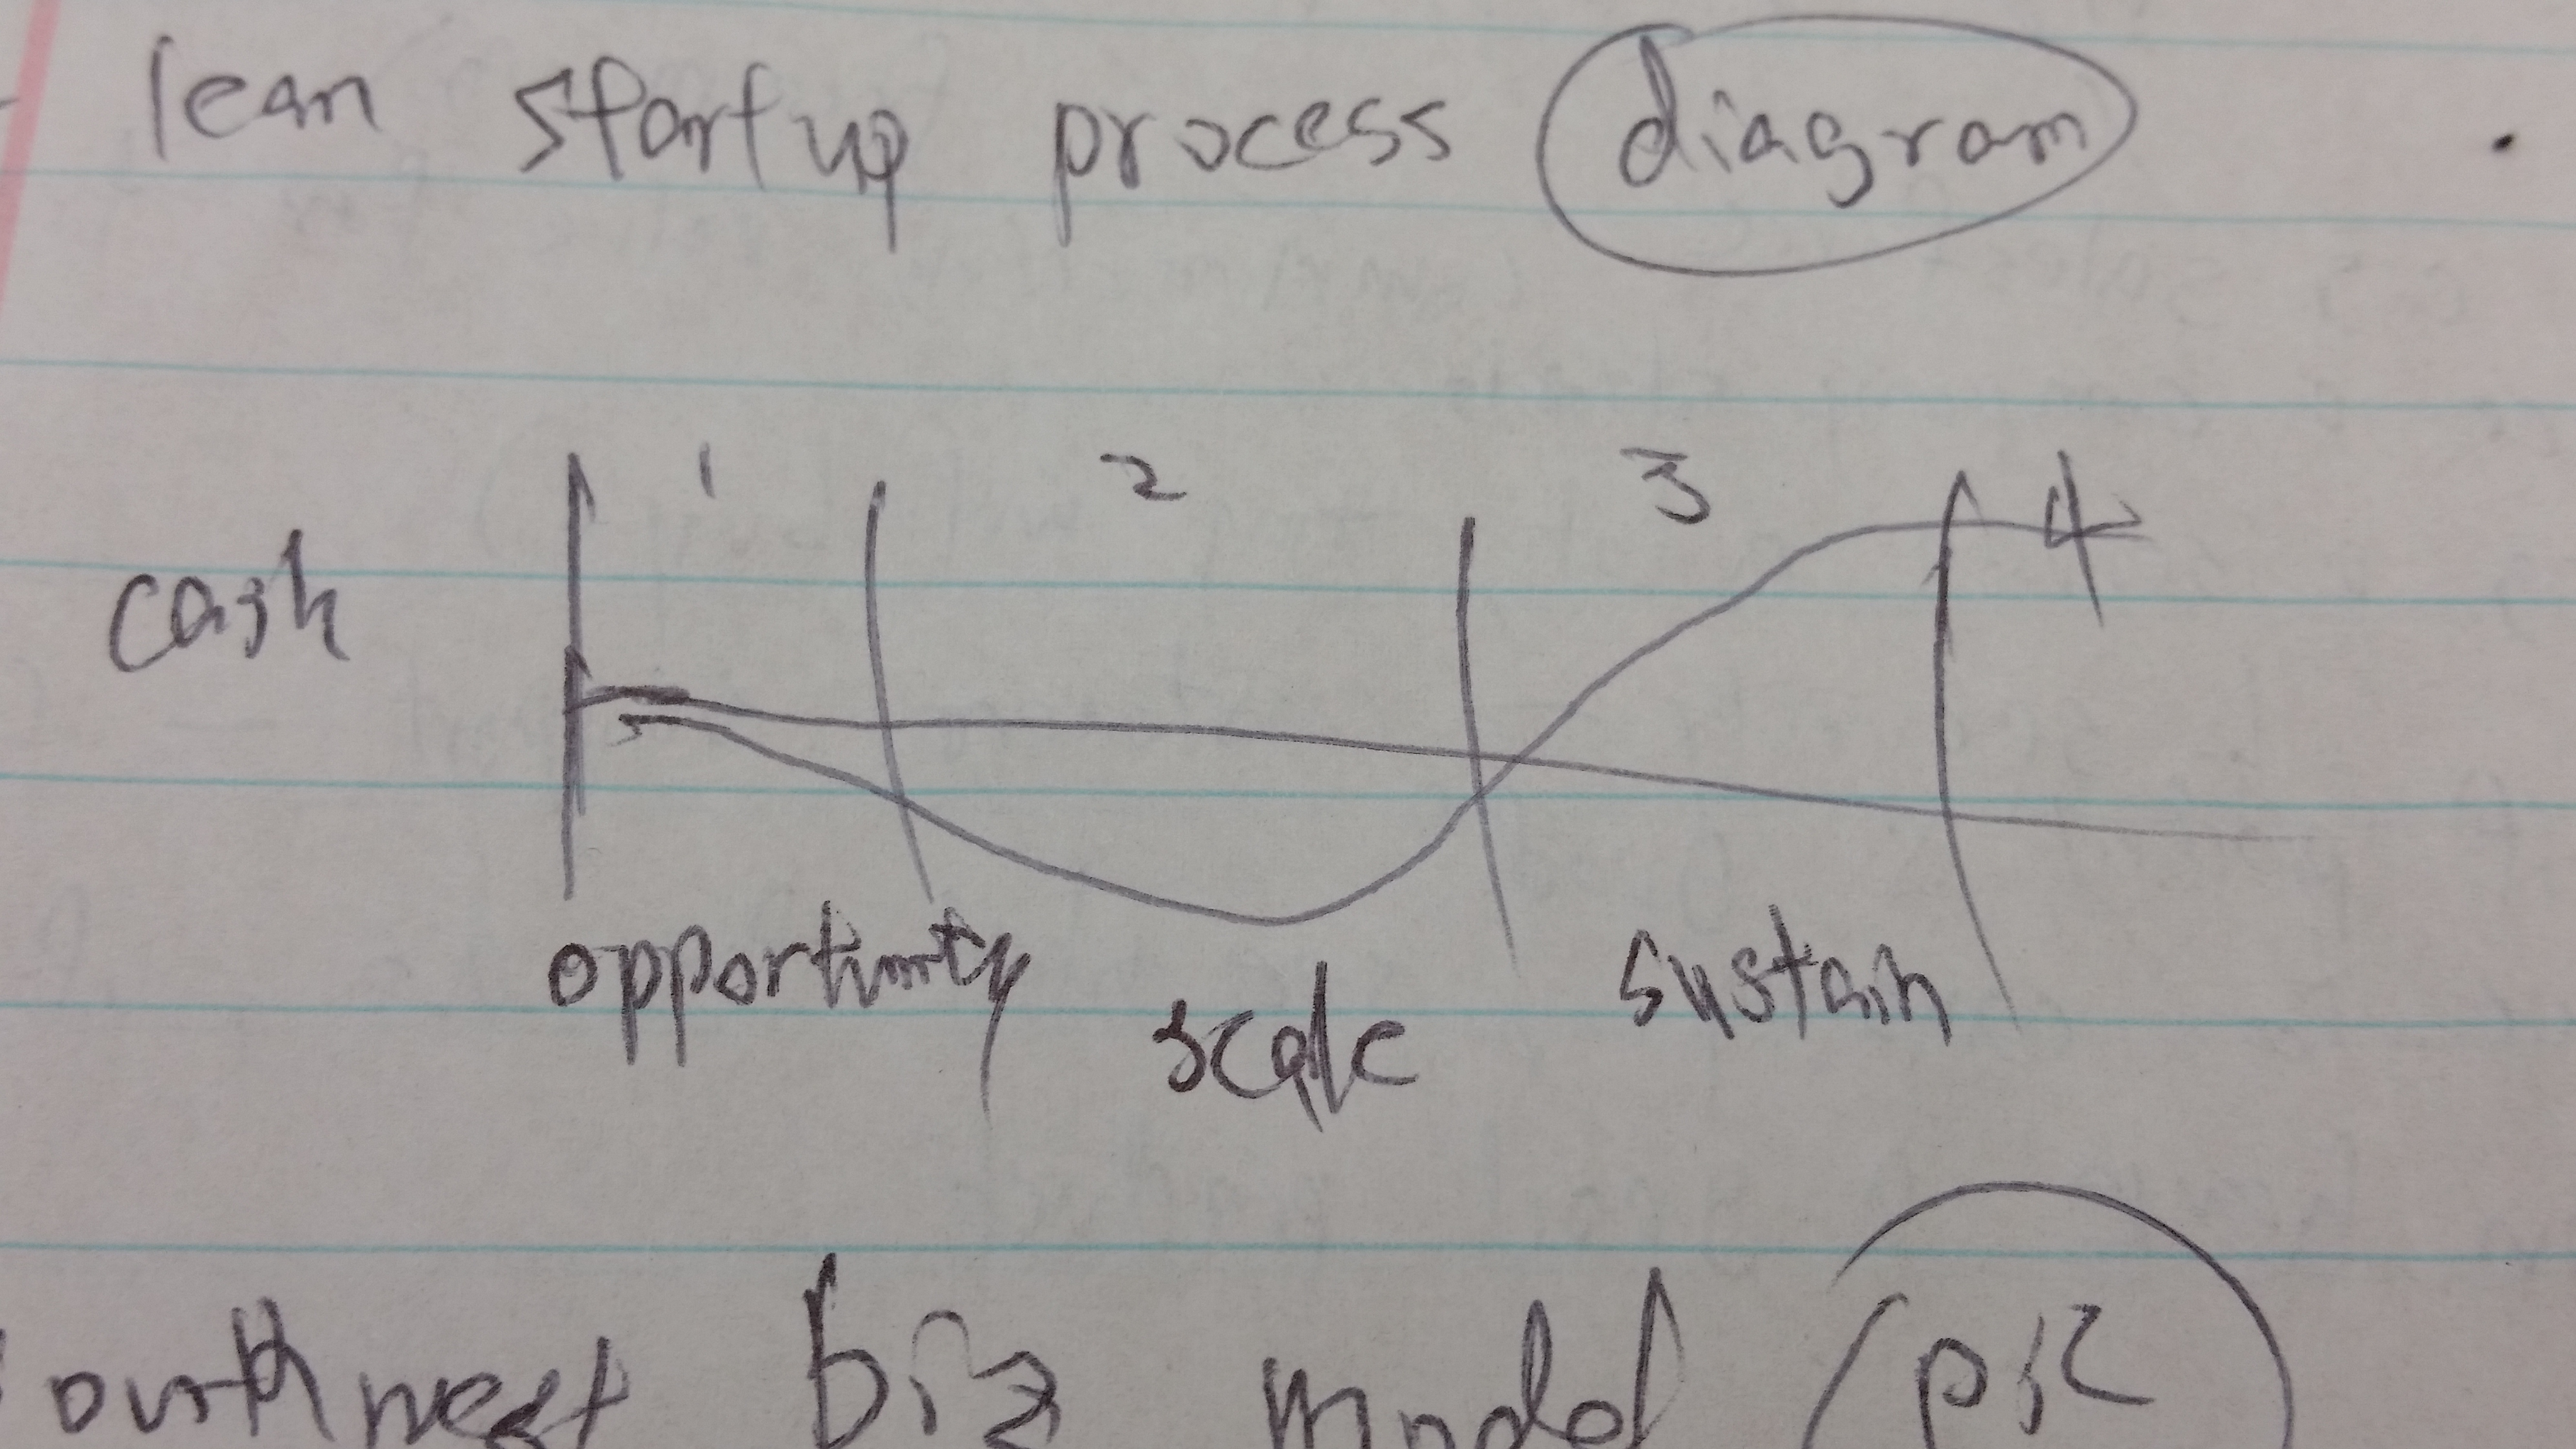 lean startup process diagram
1 2 3 4
cash
opportunity
scale
sustain
southwest biz model